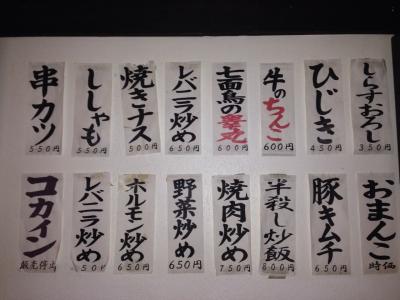 串カツ
550円
ししゃも
550円
焼きナス
500円
レバニラ炒め
650円
七面鳥の睾丸
600円
牛のちんこ
600円
ひじき
450円
しらすおろし
350円
コカイン
販売停止
レバニラ炒め
650円
ホルモン炒め
650円
野菜炒め
650円
焼肉炒め
750円
半殺し炒飯
800円
豚キムチ
650円
おまんこ
時価